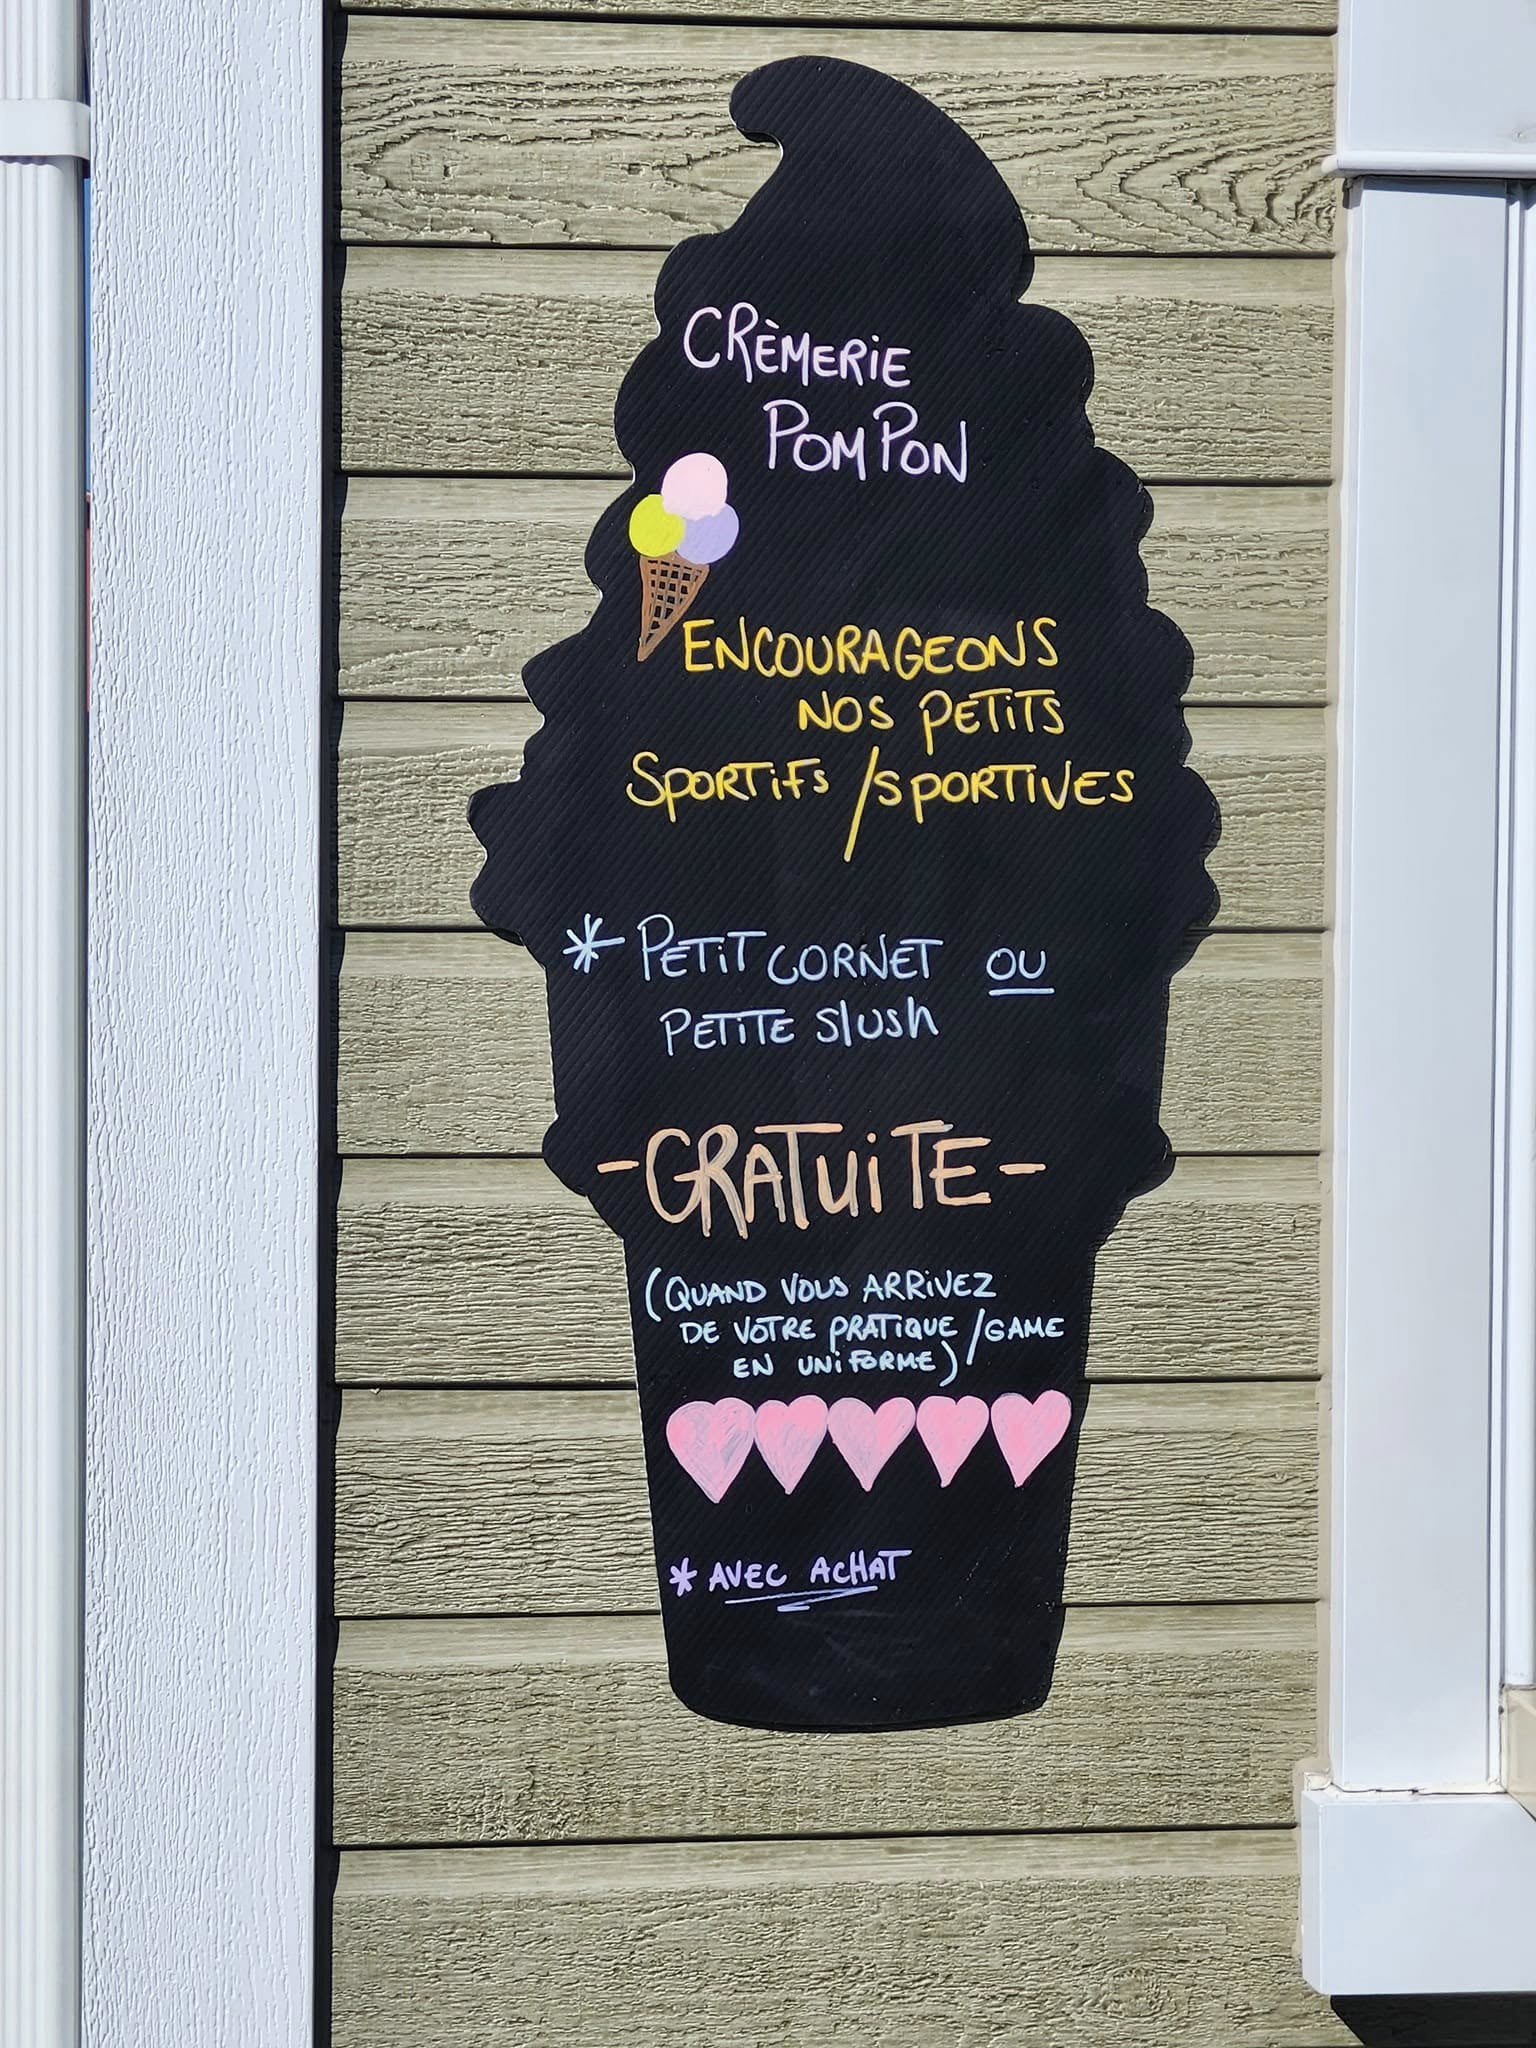 CRÈMERIE
POMPON
ENCOURAGEONS
NOS PETITS
SPORTIFS / SPORTIVES
* PETIT CORNET OU
PETITE Slush
- GRATUITE -
(QUAND VOUS ARRIVEZ
DE VOTRE PRATIQUE / GAME
EN UNIFORME)
* AVEC ACHAT